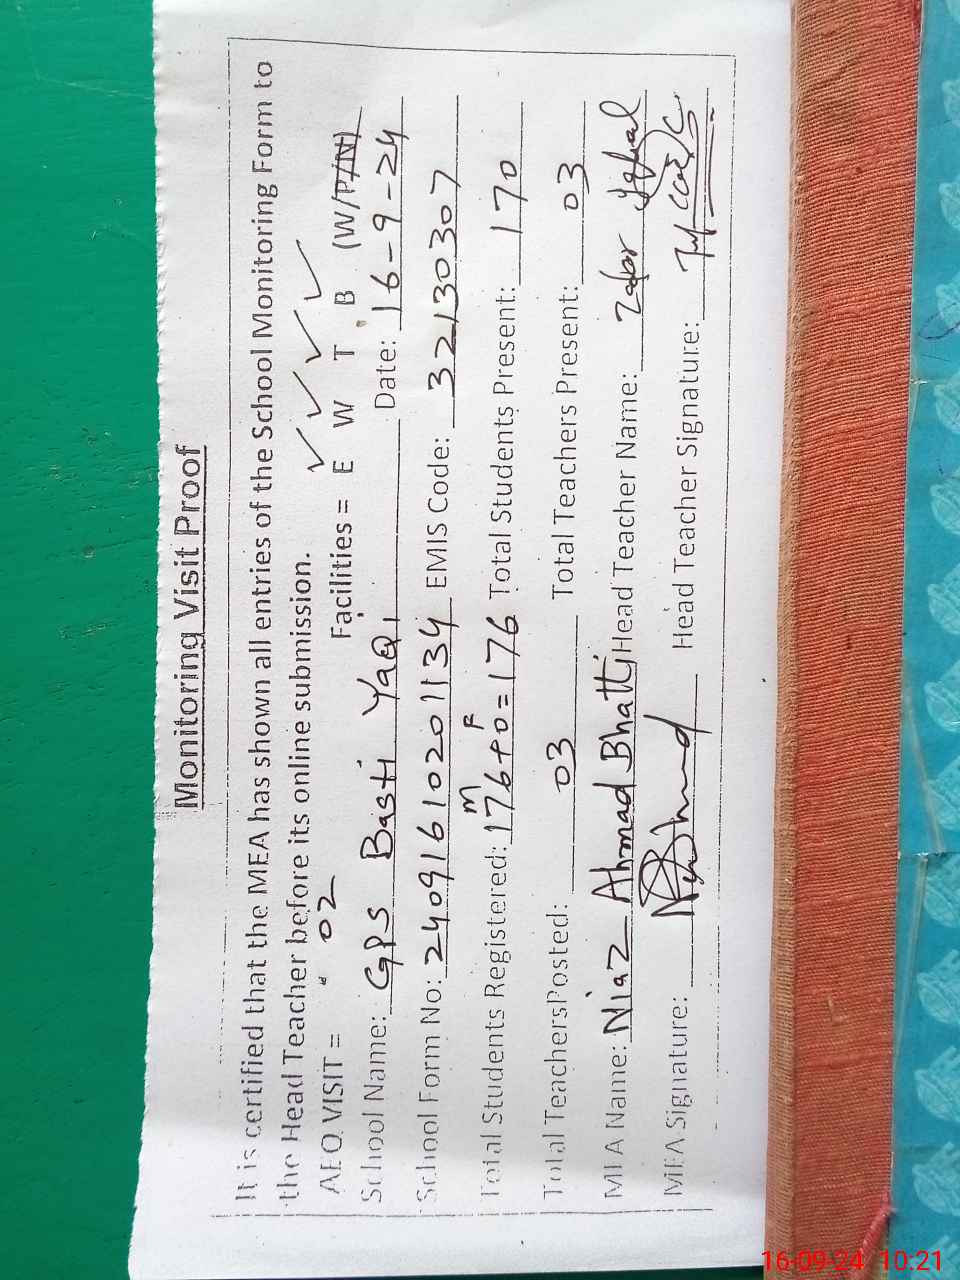 Monitoring Visit Proof
It is certified that the MEA has shown all entries of the School Monitoring Form to
the Head Teacher before its online submission.
AEO VISIT = 02 Facilities = E W T B (W/P/N)
School Name: GPS Basti YaQi Date: 16-9-24
School Form No: 24091610201134 EMIS Code: 32130307
M F
Total Students Registered: 176+0=176 Total Students Present: 170
Total TeachersPosted: 03 Total Teachers Present: 03
MEA Name: Niaz Ahmad Bhatti Head Teacher Name: Zafar Iqbal
MEA Signature: Head Teacher Signature:
16-09-24 10:21